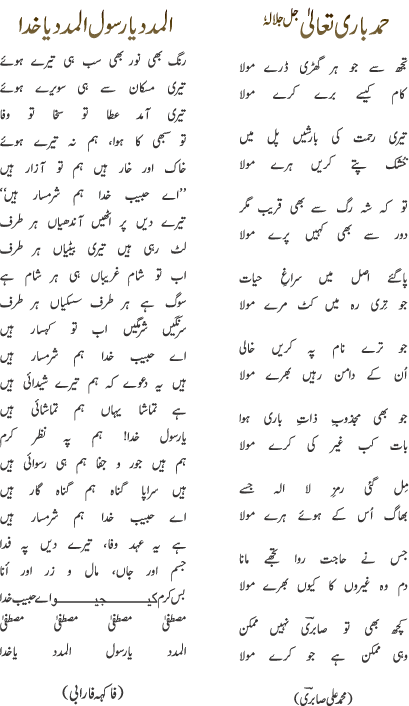 حمد باری تعالیٰ جل جلالہٗ
تجھ سے جو ہر گھڑی ڈرے مولا
کام کیسے برے کرے مولا
تیری رحمت کی بارشیں پل میں
خشک پتے کریں ہرے مولا
تو کہ شہ رگ سے بھی قریب مگر
دور سے بھی کہیں پرے مولا
پاگئے اصل میں سراغِ حیات
جو تری رہ میں کٹ مرے مولا
جو ترے نام پہ کریں خالی
اُن کے دامن رہیں بھرے مولا
جو بھی مجذوبِ ذاتِ باری ہوا
بات کب غیر کی کرے مولا
مِل گئی رمزِ لا الہ جسے
بھاگ اُس کے ہوئے ہرے مولا
جس نے حاجت روا تجھے مانا
دم وہ غیروں کا کیوں بھرے مولا
کچھ بھی تو صابریؔ نہیں ممکن
وہی ممکن ہے جو کرے مولا
(محمد علی صابریؔ)
المدد یا رسول المدد یا خدا
رنگ بھی نور بھی سب ہی تیرے ہوئے
تیری مسکان سے ہی سویرے ہوئے
تیری آمد عطا تو سخا تو وفا
تو سبھی کا ہوا، ہم نہ تیرے ہوئے
خاک اور خار ہیں ہم تو آزار ہیں
’’اے حبیب خدا ہم شرمسار ہیں‘‘
تیرے دیں پر اٹھیں آندھیاں ہر طرف
لٹ رہی ہیں تیری بیٹیاں ہر طرف
اب تو شام غریباں ہی ہر شام ہے
سوگ ہے ہر طرف سسکیاں ہر طرف
سرنگیں شرمگیں اب تو کہسار ہیں
اے حبیب خدا ہم شرمسار ہیں
ہیں یہ دعوے کہ ہم تیرے شیدائی ہیں
ہے تماشا یہاں ہم تماشائی ہیں
یارسول خدا! ہم پہ نظر کرم
ہم ہیں جور و جفا ہم ہی رسوائی ہیں
ہیں سراپا گناہ ہم گناہ گار ہیں
اے حبیب خدا ہم شرمسار ہیں
ہے یہ عہد وفا، تیرے دیں پہ فدا
جسم اور جاں، مال و زر اور اَنا
بس کرم کیجیو اے حبیب خدا
مصطفیٰ مصطفیٰ مصطفیٰ مصطفیٰ
المدد یارسول المدد یاخدا
(فاکہہ فارابی)